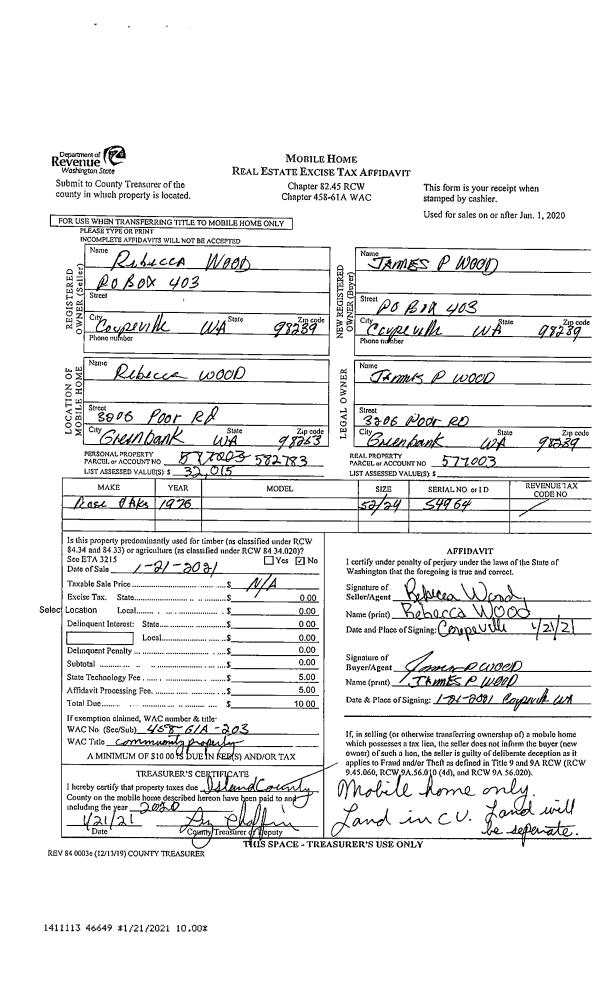 Department of
Revenue
Washington State
Submit to County Treasurer of the
county in which property is located.
MOBILE HOME
REAL ESTATE EXCISE TAX AFFIDAVIT
Chapter 82.45 RCW
Chapter 458-61A WAC
This form is your receipt when
stamped by cashier.
Used for sales on or after Jan. 1, 2020
FOR USE WHEN TRANSFERRING TITLE TO MOBILE HOME ONLY
PLEASE TYPE OR PRINT
INCOMPLETE AFFIDAVITS WILL NOT BE ACCEPTED
REGISTERED OWNER (Seller)
Name Rebecca Wood
PO BOX 403
Street
City Coupeville State WA Zip code 98239
Phone number
NEW REGISTERED OWNER (Buyer)
Name JAMES P WOOD
Street PO BOX 403
City Coupeville State WA Zip code 98239
Phone number
LOCATION OF MOBILE HOME
Name Rebecca WOOD
Street 3206 Poor RD
City Greenbank State WA Zip code 98253
LEGAL OWNER
Name James P WOOD
Street 3206 Poor RD
City Greenbank State WA Zip code 98239
PERSONAL PROPERTY
PARCEL or ACCOUNT NO 577003 582783
LIST ASSESSED VALUE(S) $ 32,015
REAL PROPERTY
PARCEL or ACCOUNT NO 577003
LIST ASSESSED VALUE(S): $
MAKE YEAR MODEL SIZE SERIAL NO or I D REVENUE TAX CODE NO
1976 52/24 S4964
Is this property predominantly used for timber (as classified under RCW
84.34 and 84 33) or agriculture (as classified under RCW 84 34.020)?
See ETA 3215 Yes ✓ No
Date of Sale 1-21-2021
Taxable Sale Price $ N/A
Excise Tax. State $ 0 00
Select Location Local $ 0.00
Delinquent Interest: State $ 0.00
Local $ 0.00
Delinquent Penalty $ 0.00
Subtotal $ 0.00
State Technology Fee $ 5.00
Affidavit Processing Fee $ 5.00
Total Due $ 10 00
If exemption claimed, WAC number & title·
WAC No (Sec/Sub) 458-61A-203
WAC Title community property
A MINIMUM OF $10 00 IS DUE IN FEE(S) AND/OR TAX
TREASURER'S CERTIFICATE
I hereby certify that property taxes due Island County
County on the mobile home described hereon have been paid to and
including the year 2020
1/21/21
Date County Treasurer or Deputy
AFFIDAVIT
I certify under penalty of perjury under the laws of the State of
Washington that the foregoing is true and correct.
Signature of
Seller/Agent Rebecca Wood
Name (print) Rebecca WOOD
Date and Place of Signing: Coupeville 1/21/21
Signature of
Buyer/Agent James P WOOD
Name (print) JAMES P WOOD
Date & Place of Signing: 1-21-2021 Coupeville WA
If, in selling (or otherwise transferring ownership of) a mobile home
which possesses a tax lien, the seller does not inform the buyer (new
owner) of such a lien, the seller is guilty of deliberate deception as it
applies to Fraud and/or Theft as defined in Title 9 and 9A RCW (RCW
9.45.060, RCW 9A.56.010 (4d), and RCW 9A 56.020).
Mobile home only.
Land in CU. Land will
be seperate.
THIS SPACE - TREASURER'S USE ONLY
REV 84 0003e (12/13/19) COUNTY TREASURER
1411113 46649 *1/21/2021 10.00*